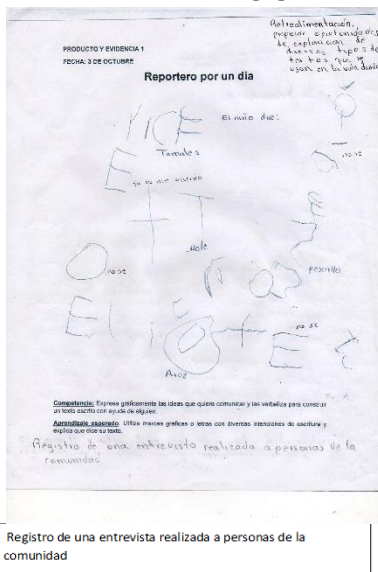 Retroalimentación,
propiciar oportunidades
de exploración de
diversos tipos de
textos que se
usan en la vida diaria
PRODUCTO Y EVIDENCIA 1
FECHA: 3 DE OCTUBRE
Reportero por un dia
El niño dice:
Tamales
no se
ya no me acuerdo
Mole
no se
pescadillo
no se
Arroz
Competencia: Expresa gráficamente las ideas que quiere comunicar y las verbaliza para construir
un texto escrito con ayuda de alguien.
Aprendizaje esperado: Utiliza marcas graficas o letras con diversas intenciones de escritura y
explica que dice su texto.
Registro de una entrevista realizada a personas de la
comunidad
Registro de una entrevista realizada a personas de la
comunidad